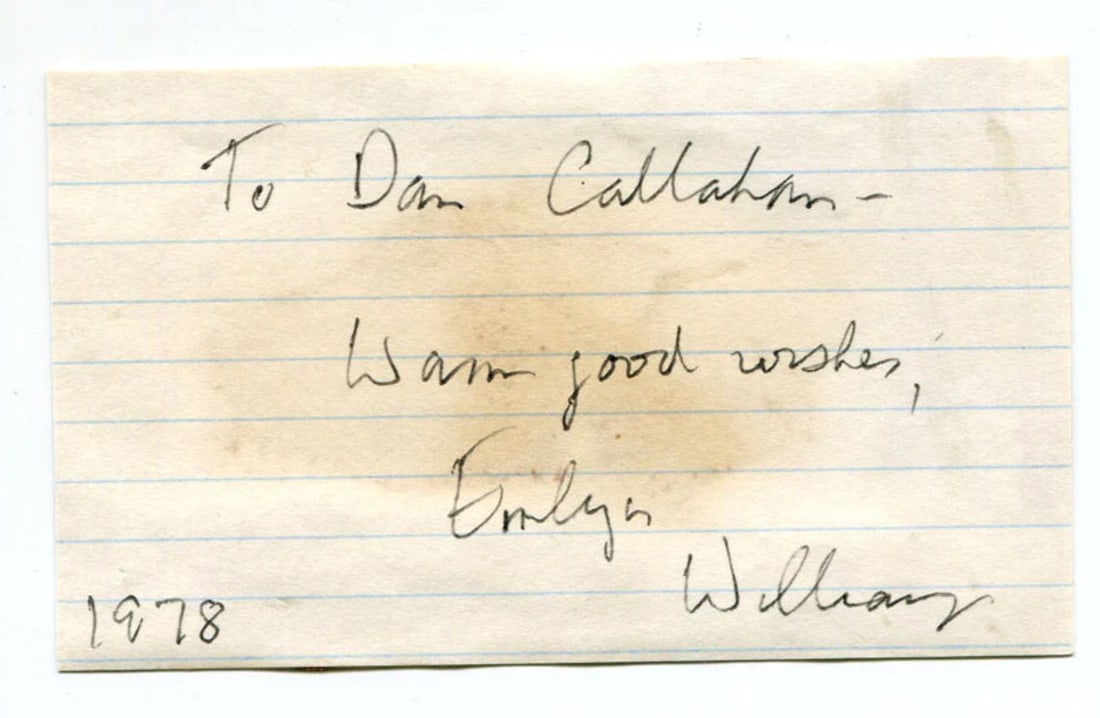 To Dan Callahan –
Warm good wishes,
Emlyn
Williams
1978